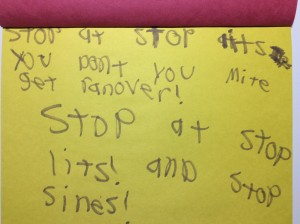 STOP at STOP lits
You Dont You Mite
get ranover!
STOP at STOP
lits! and STOP
sines!